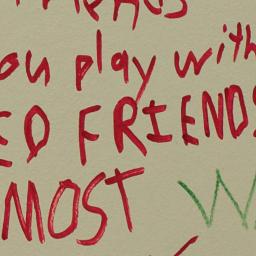 you play with
ED FRIENDS
MOST W